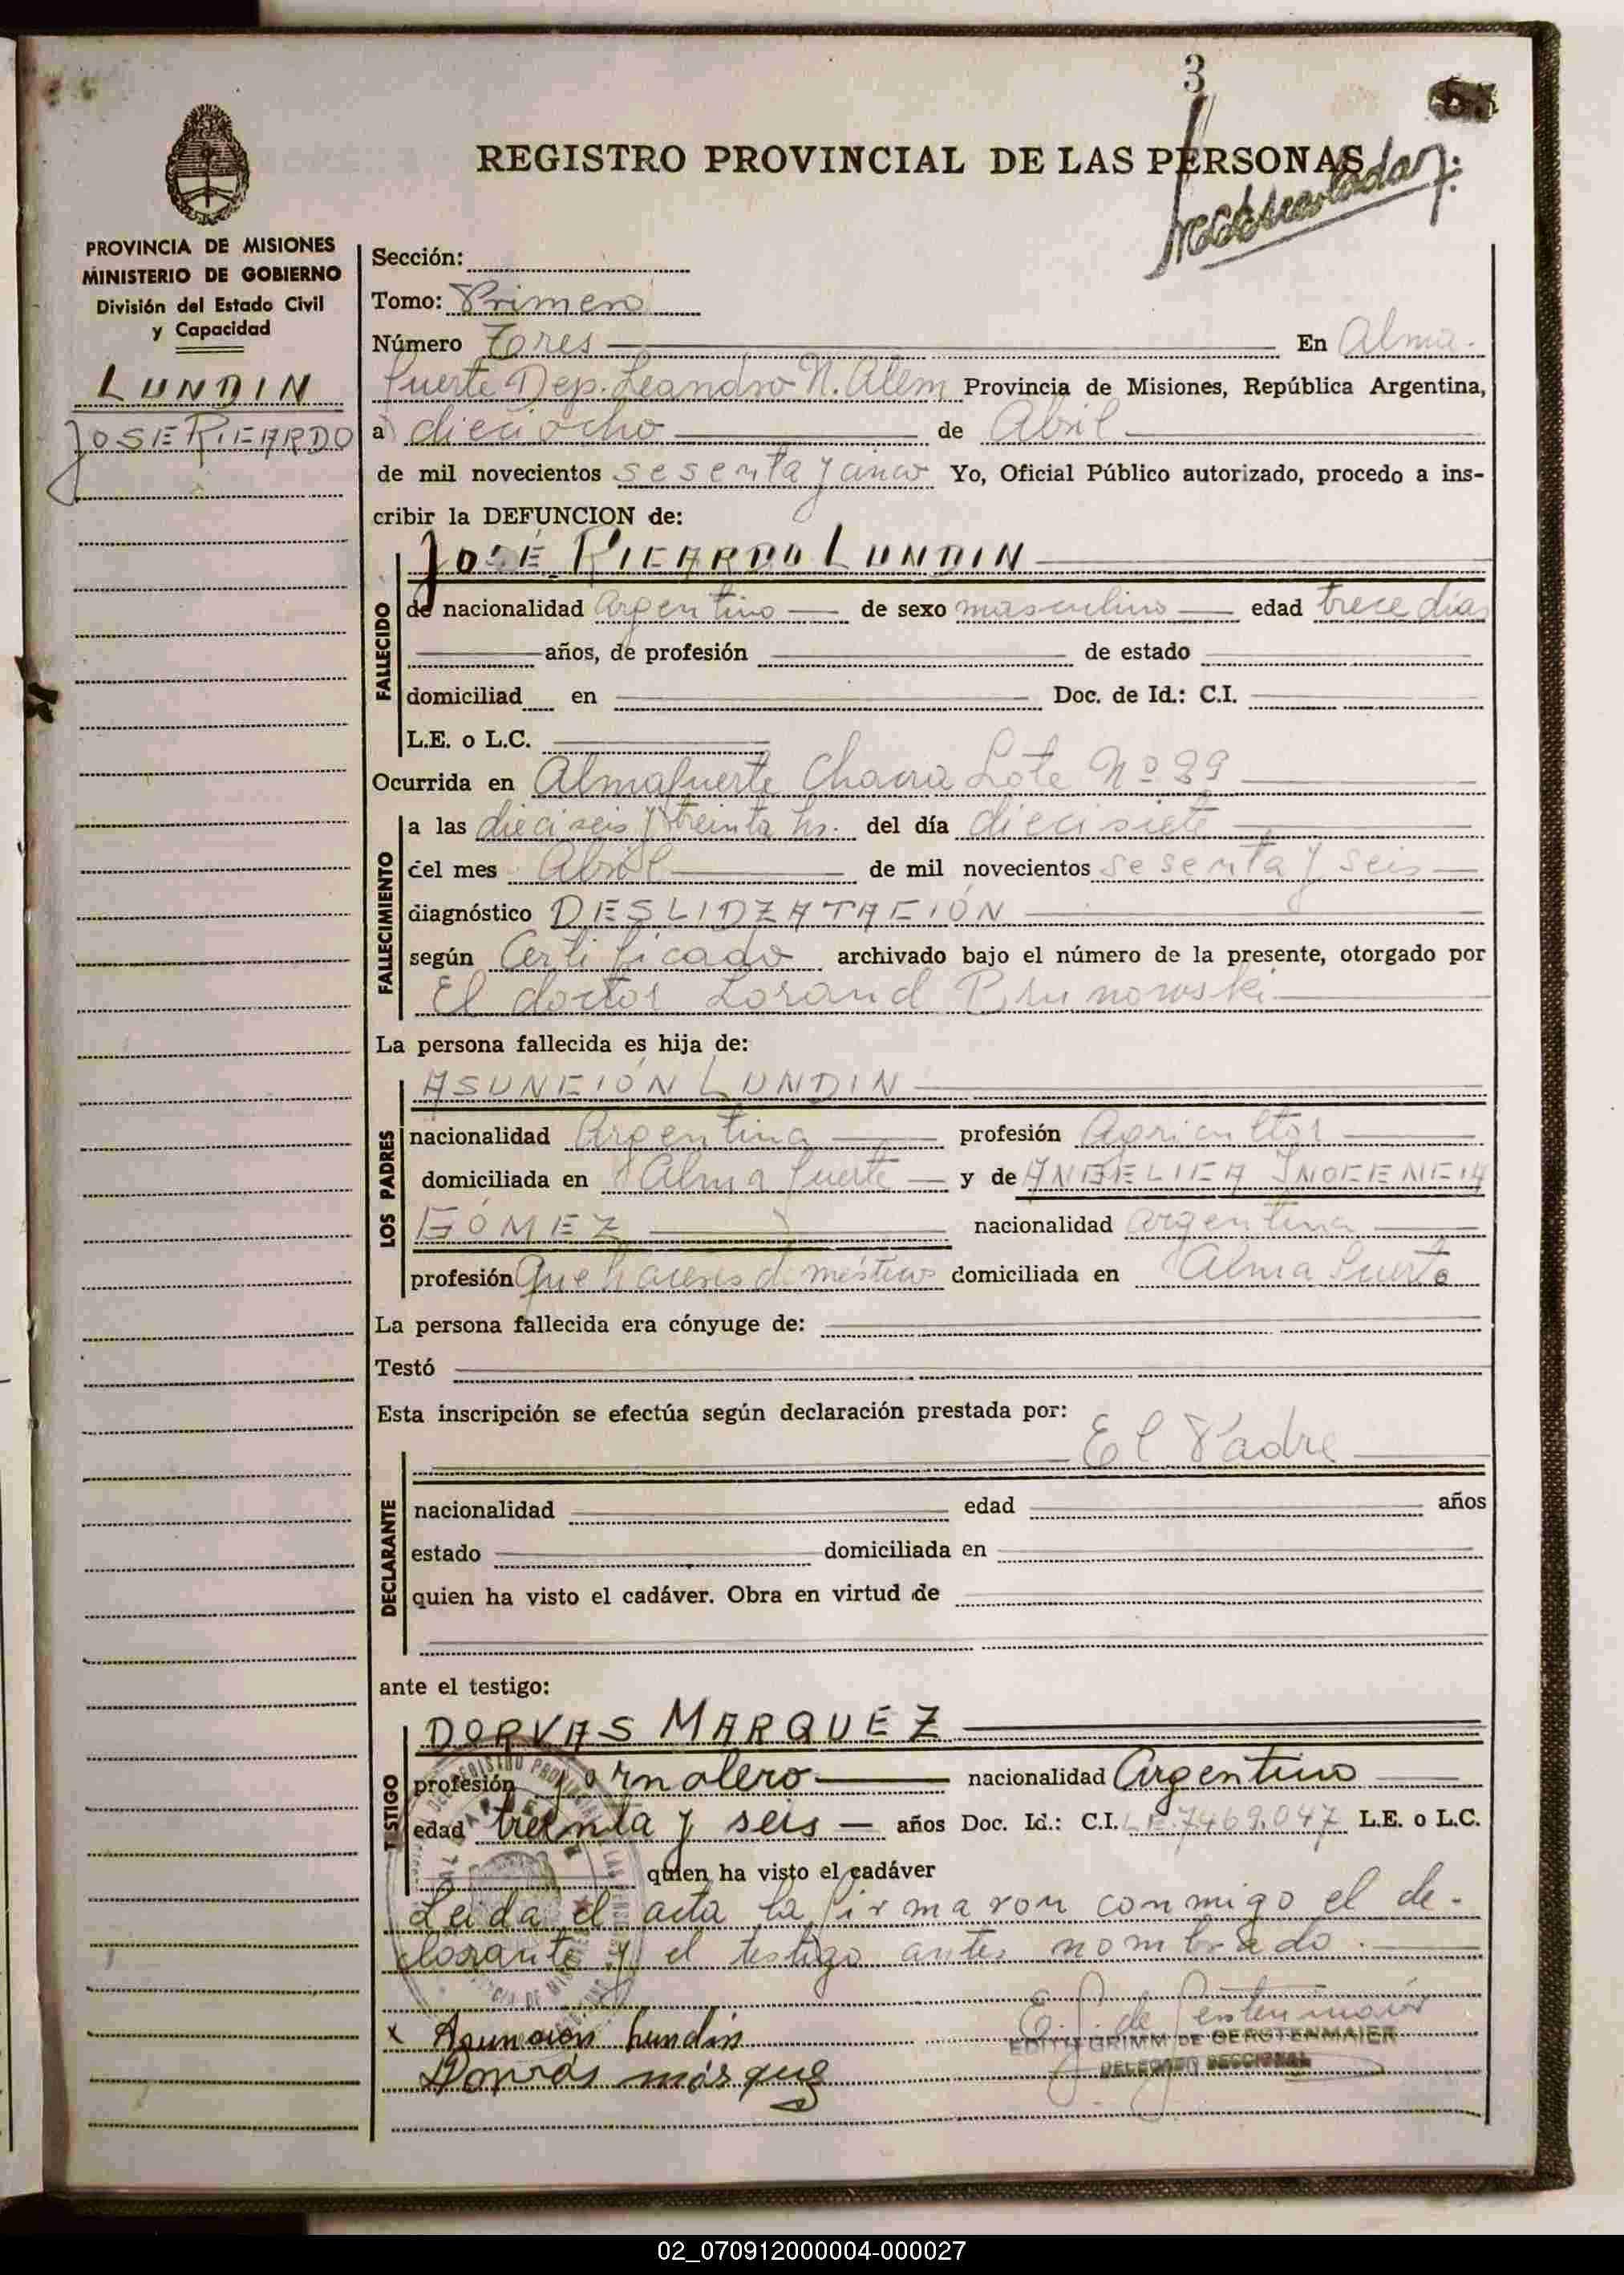 3
REGISTRO PROVINCIAL DE LAS PERSONAS
PROVINCIA DE MISIONES
MINISTERIO DE GOBIERNO
División del Estado Civil
y Capacidad
LUNDIN
JOSE RICARDO
Sección:
Tomo: Primero
Número Tres En Alma-
fuerte Dep. Leandro N. Alem Provincia de Misiones, República Argentina,
a dieciocho de Abril
de mil novecientos sesenta y cinco Yo, Oficial Público autorizado, procedo a ins-
cribir la DEFUNCION de:
JOSÉ RICARDO LUNDIN
FALLECIDO
de nacionalidad Argentino de sexo masculino edad trece días
años, de profesión de estado
domiciliad en Doc. de Id.: C.I.
L.E. o L.C.
Ocurrida en Almafuerte Chacra Lote Nº 89
FALLECIMIENTO
a las dieciseis y treinta hs. del día diecisiete
del mes Abril de mil novecientos sesenta y seis
diagnóstico DESLIDZATACIÓN
según Certificado archivado bajo el número de la presente, otorgado por
El doctor Lorand Brunowski
La persona fallecida es hija de:
LOS PADRES
ASUNCIÓN LUNDIN
nacionalidad Argentina profesión Agricultor
domiciliada en Alma fuerte y de ANGELICA INOCENCIA
GÓMEZ nacionalidad argentina
profesión Quehaceres domésticos domiciliada en Alma fuerte
La persona fallecida era cónyuge de:
Testó
Esta inscripción se efectúa según declaración prestada por:
El Padre
DECLARANTE
nacionalidad edad años
estado domiciliada en
quien ha visto el cadáver. Obra en virtud de
ante el testigo:
TESTIGO
DORVAS MARQUEZ
profesión jornalero nacionalidad Argentino
edad treinta y seis años Doc. Id.: C.I. L.E. 7469.047 L.E. o L.C.
quien ha visto el cadáver
Leida el acta la firmaron conmigo el de-
clarante y el testigo antes nombrado.
E. G. de Gerstenmaier
x Asuncion Lundin
EDITH GRIMM DE GERSTENMAIER
DELEGADO SECCIONAL
Dorvas márquez
02_070912000004-000027